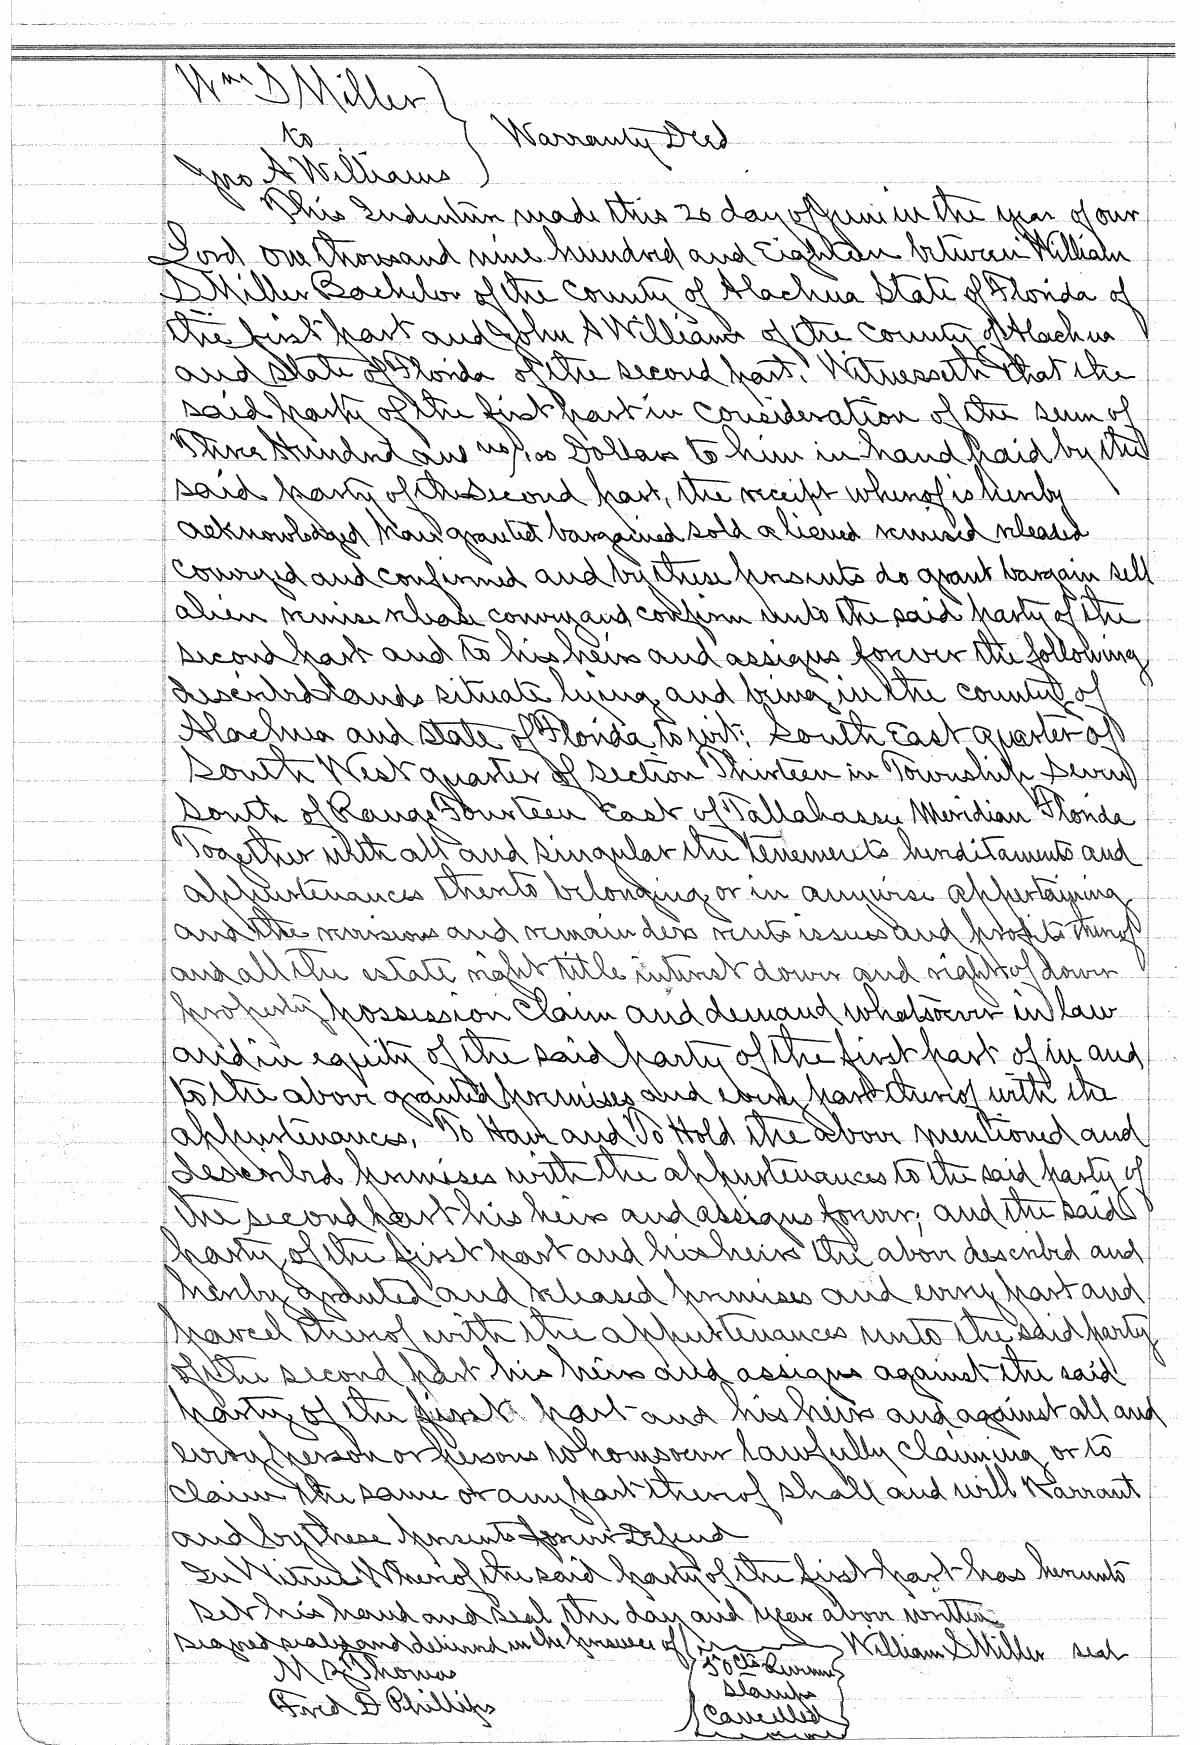 Wm S Miller
to
Jno A Williams
Warranty Deed
This Indenture made this 20 day of June in the year of our
Lord one thousand nine hundred and Eighteen between William
S Miller Bachelor of the County of Alachua State of Florida of
the first part and John A Williams of the County of Alachua
and State of Florida of the second part. Witnesseth that the
said party of the first part in consideration of the sum of
Three Hundred and no/100 Dollars to him in hand paid by the
said party of the second part, the receipt whereof is hereby
acknowledged have granted bargained sold aliened remised released
conveyed and confirmed and by these presents do grant bargain sell
alien remise release convey and confirm unto the said party of the
second part and to his heirs and assigns forever the following
described lands situate lying and being in the county of
Alachua and State of Florida to wit: South East quarter of
South West quarter of Section Thirteen in Township Seven
South of Range Fourteen East of Tallahassee Meridian Florida
Together with all and singular the tenements hereditaments and
appurtenances thereto belonging or in anywise appertaining
and the reversions and remainders rents issues and profits thereof
and all the estate right title interest dower and right of dower
property possession claim and demand whatsoever in law
and in equity of the said party of the first part of in and
to the above granted premises and every part thereof with the
appurtenances. To Have and To Hold the above mentioned and
described premises with the appurtenances to the said party of
the second part his heirs and assigns forever; and the said
party of the first part and his heirs the above described and
hereby granted and released premises and every part and
parcel thereof with the appurtenances unto the said party
of the second part his heirs and assigns against the said
party of the first part and his heirs and against all and
every person or persons whomsoever lawfully claiming or to
claim the same or any part thereof shall and will Warrant
and by these presents forever Defend
In Witness Whereof the said party of the first part has hereunto
set his hand and seal the day and year above written
Signed sealed and delivered in the presence of William S Miller seal
M Thomas
Fred D Phillips
50 cts Revenue
stamps
Cancelled